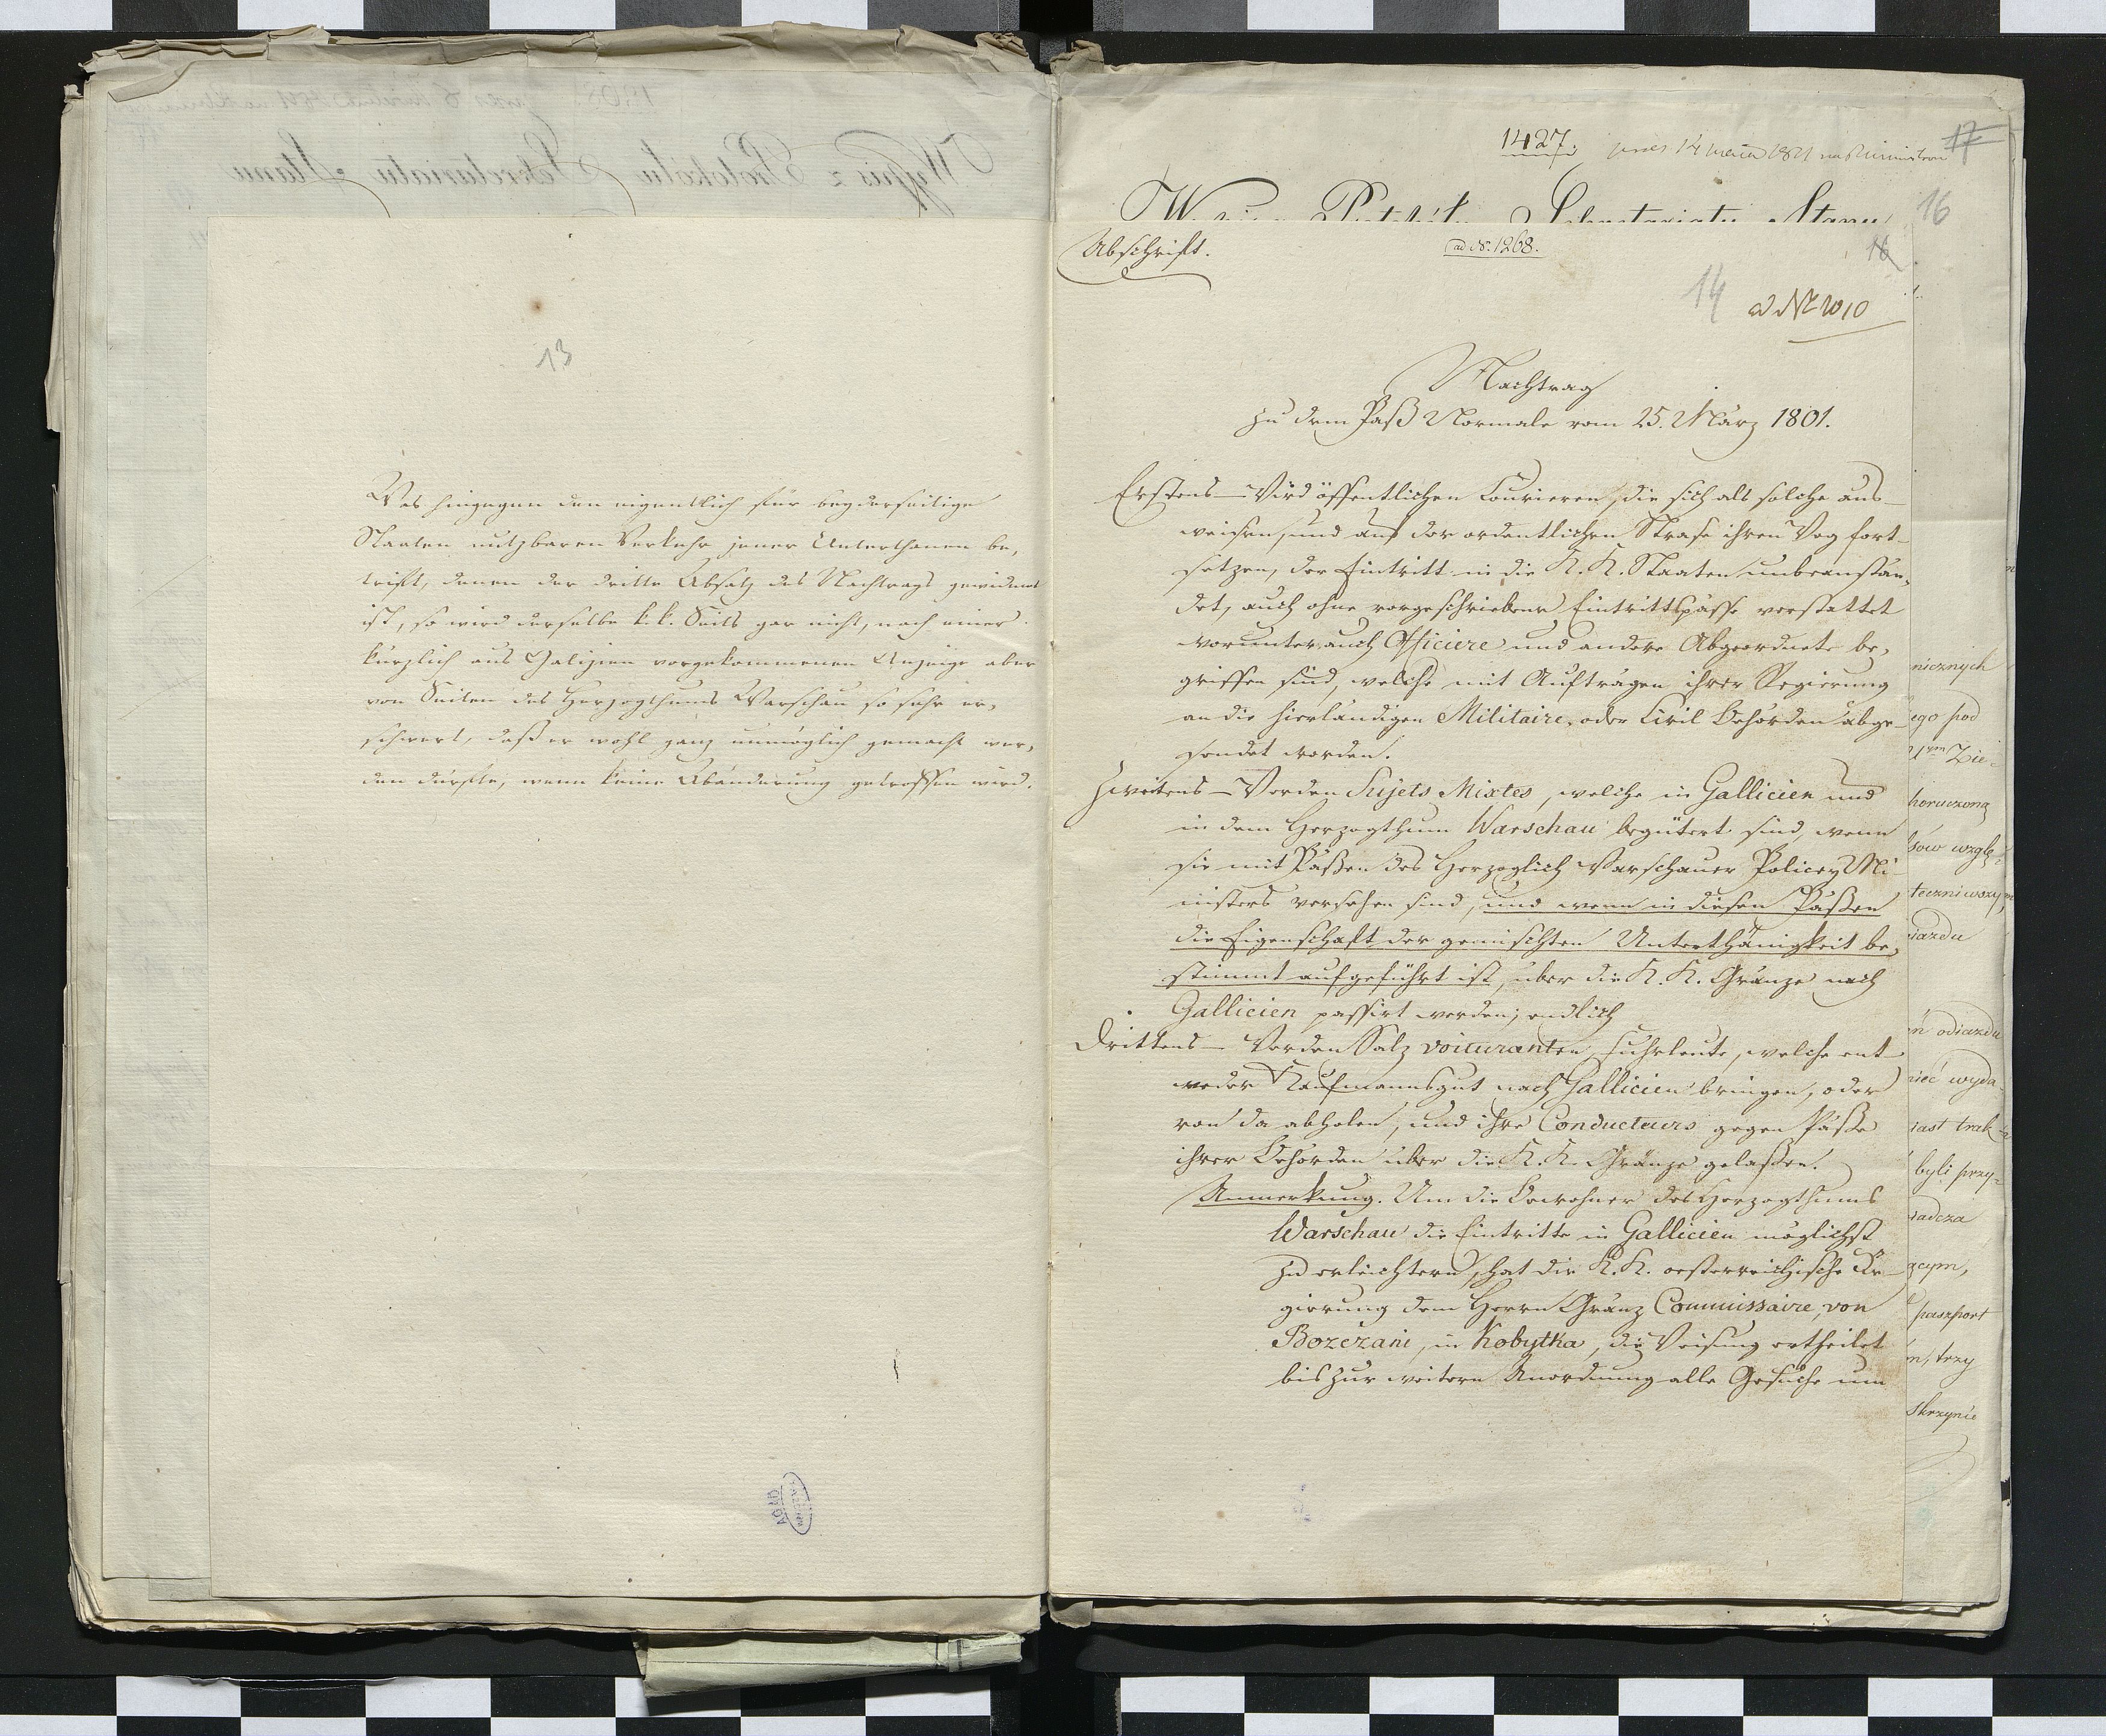 13
Was hingegen den eigentlich für beyderseitige
Staaten nutzbaren Verkehr jener Unterthanen be,
trift, denen der dritte Absatz des Nachtrags gewidmet
ist, so wird derselbe k.k. Seits gar nicht, nach einer
kürzlich aus Galizien vorgekommenen Anzeige aber
von Seiten des Herzogthums Warschau so sehr er,
schwert, daß er wohl ganz unmöglich gemacht wer,
den dürfte, wenn keine Abänderung getroffen wird.
AGAD
1427.
17
16
Sekretariatu Stanu
Abschrift.
ad N. 1268.
16
14
Nachtrag
zu dem Paß Normale vom 25. März 1801.
Erstens – Wird öffentlichen Courieren, die sich als solche aus-
weisen, und auf der ordentlichen Strase ihren Weg fort-
setzen, der Eintritt in die K. K. Staaten unbeanstän,
det, auch ohne vorgeschriebene Eintrittspässe verstattet
worunter auch Officiere und andere Abgeordnete be,
griffen sind, welche mit Aufträgen ihrer Regierung
an die hierländigen Militaire, oder Civil Behörden abge-
sendet worden.
Zweitens – Werden Sujets Mixtes, welche in Gallicien und
in dem Herzogthum Warschau begütert sind, wenn
sie mit Päßen des Herzoglich Warschauer Policey Mi-
nisters versehen sind, und wenn in diesen Päßen
die Eigenschaft der gemischten Unterthänigkeit be,
stimmt aufgeführt ist, über die K. K. Gränze nach
Gallicien passirt werden; endlich
Drittens – Werden Salz voituranten, Fuhrleute, welche ent-
weder Kaufmannsgut nach Gallicien bringen, oder
von da abholen, und ihre Conducteurs gegen Päße
ihrer Behörden über die K. K. Gränze gelaßen.
Anmerkung. Um die Bewohner des Herzogthums
Warschau die Eintritte in Gallicien möglichst
zu erleichtern, hat die K. K. oesterreichische Re-
gierung dem Herrn Gränz Commissaire, von
Bozezani, in Kobytka, die Weisung ertheilet
bis zur weitern Anordnung alle Gesuche um
nicznych
ego pod
horuczong
sów wzglę-
iazdu
odiazdu
nieć wyda-
iast trak-
byli przy-
iadcza
zcym,
paszport
trzy
Skrzynie